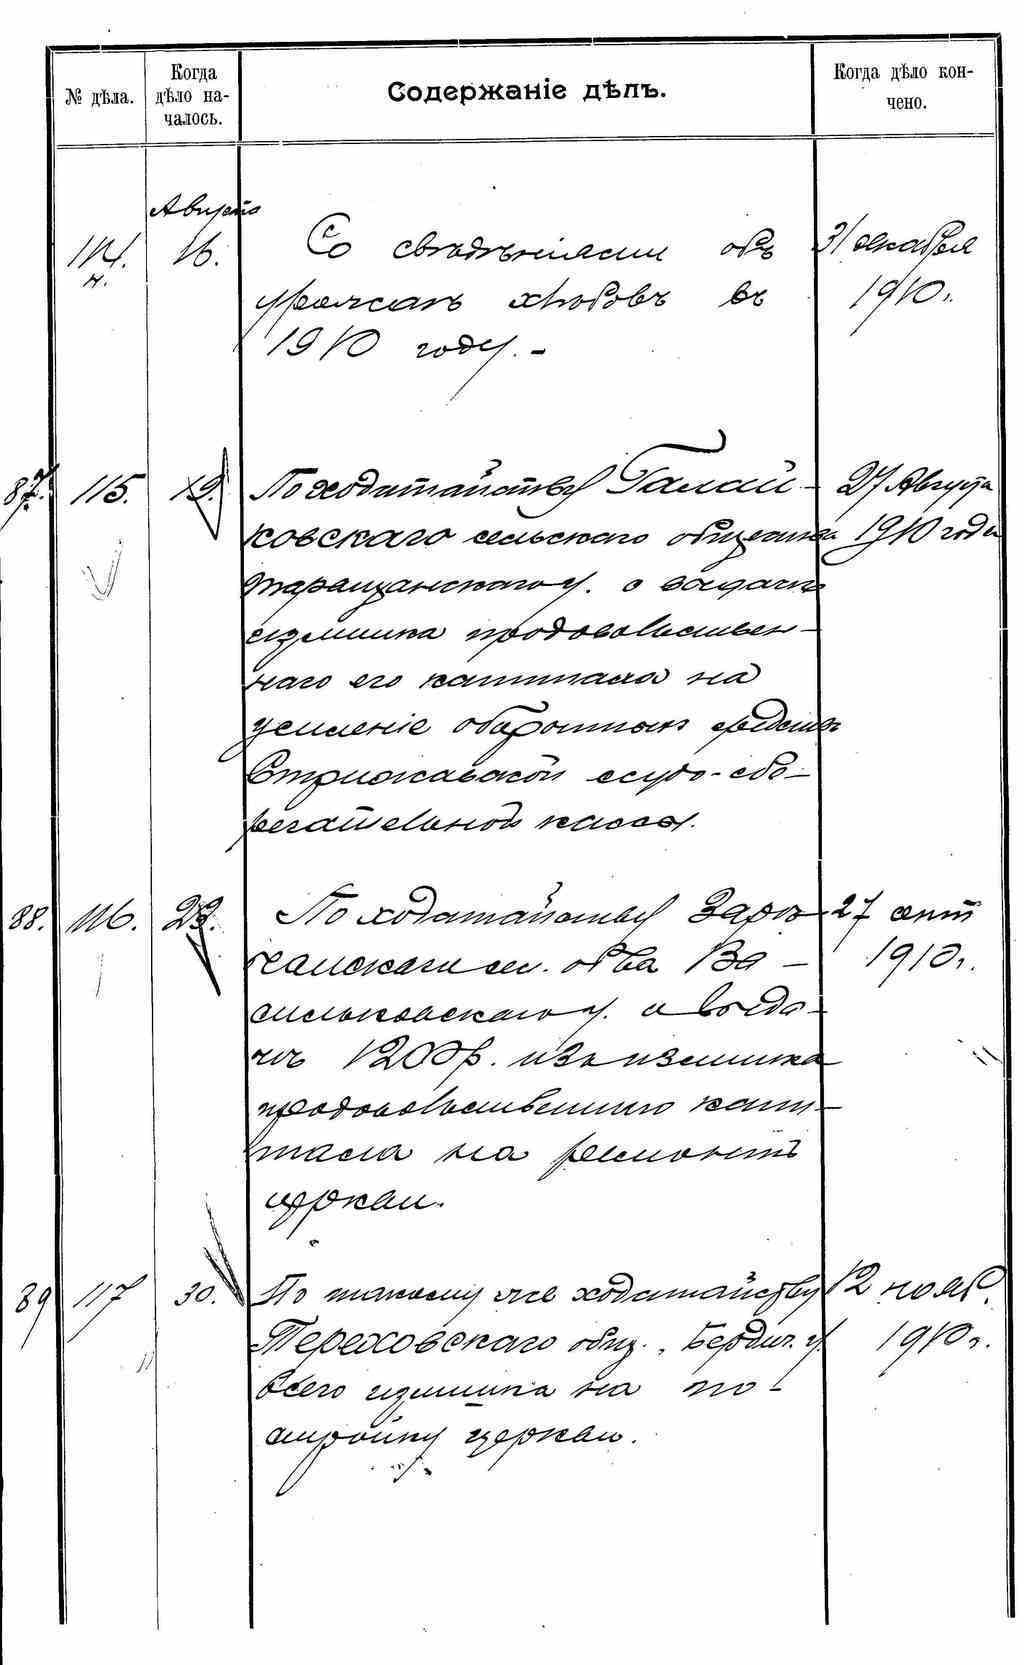 № дѣла.
Когда
дѣло на-
чалось.
Содержаніе дѣлъ.
Когда дѣло кон-
чено.
Августа
114. 16. Со свѣдѣніями объ 31 декабря
н.
урожаѣ хлѣбовъ въ 1910 г.
1910 году. -
87. 115. 19. По ходатайству Галай- 27 Августа
ковскаго сельскаго общества 1910 года
Таращанскаго у. о выдачѣ
излишка продовольствен-
наго его капитала на
усиленіе оборотныхъ средствъ
Стрижавской ссудо-сбе-
регательной кассы.
88. 116. 23. По ходатайству Заръ- 27 сент
чанскаго сел. об-ва Ва- 1910 г.
сильковскаго у. о выда-
чѣ 1200 р. изъ излишка
продовольственнаго капи-
тала на ремонтъ
церкви.
89 117 30. По такому же ходатайству 12 нояб.
Тереховскаго общ., Бердич. у. 1910 г.
всего излишка на по-
стройку церкви.